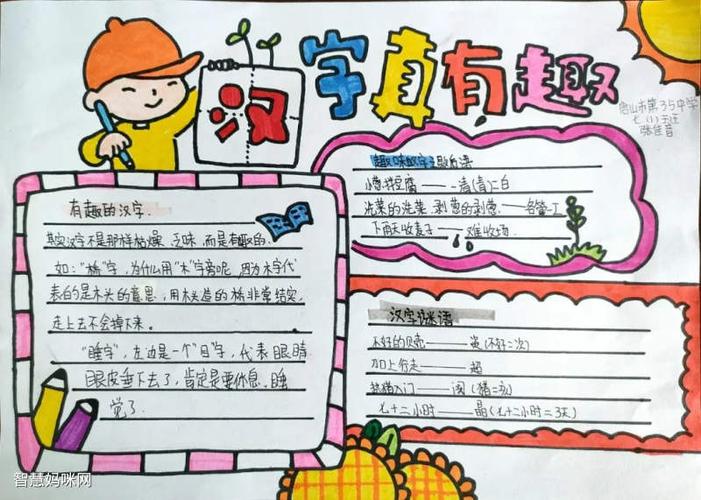 汉字真有趣
唐山市第35中学
七(1)
张佳音
有趣的汉字.
其实汉字不是那样枯燥、乏味,而是有趣的.
如:"桥"字,为什么用"木"字旁呢,因为木字代
表的是木头的意思,用木头造的桥非常结实,
走上去不会掉下来。
"睡字",左边是一个"目"字,代表眼睛
眼皮垂下去了,肯定是要休息、睡
觉了.
趣味汉字之歇后语
小葱拌豆腐——一清(青)二白
洗菜的洗菜,剥葱的剥葱——各管一工
下雨天收麦子——难收场
汉字谜语
不好的贝壳——
加上行走——超
入门——阂(猪=亥)
七十二小时——晶(七十二小时=3天)
智慧妈咪网